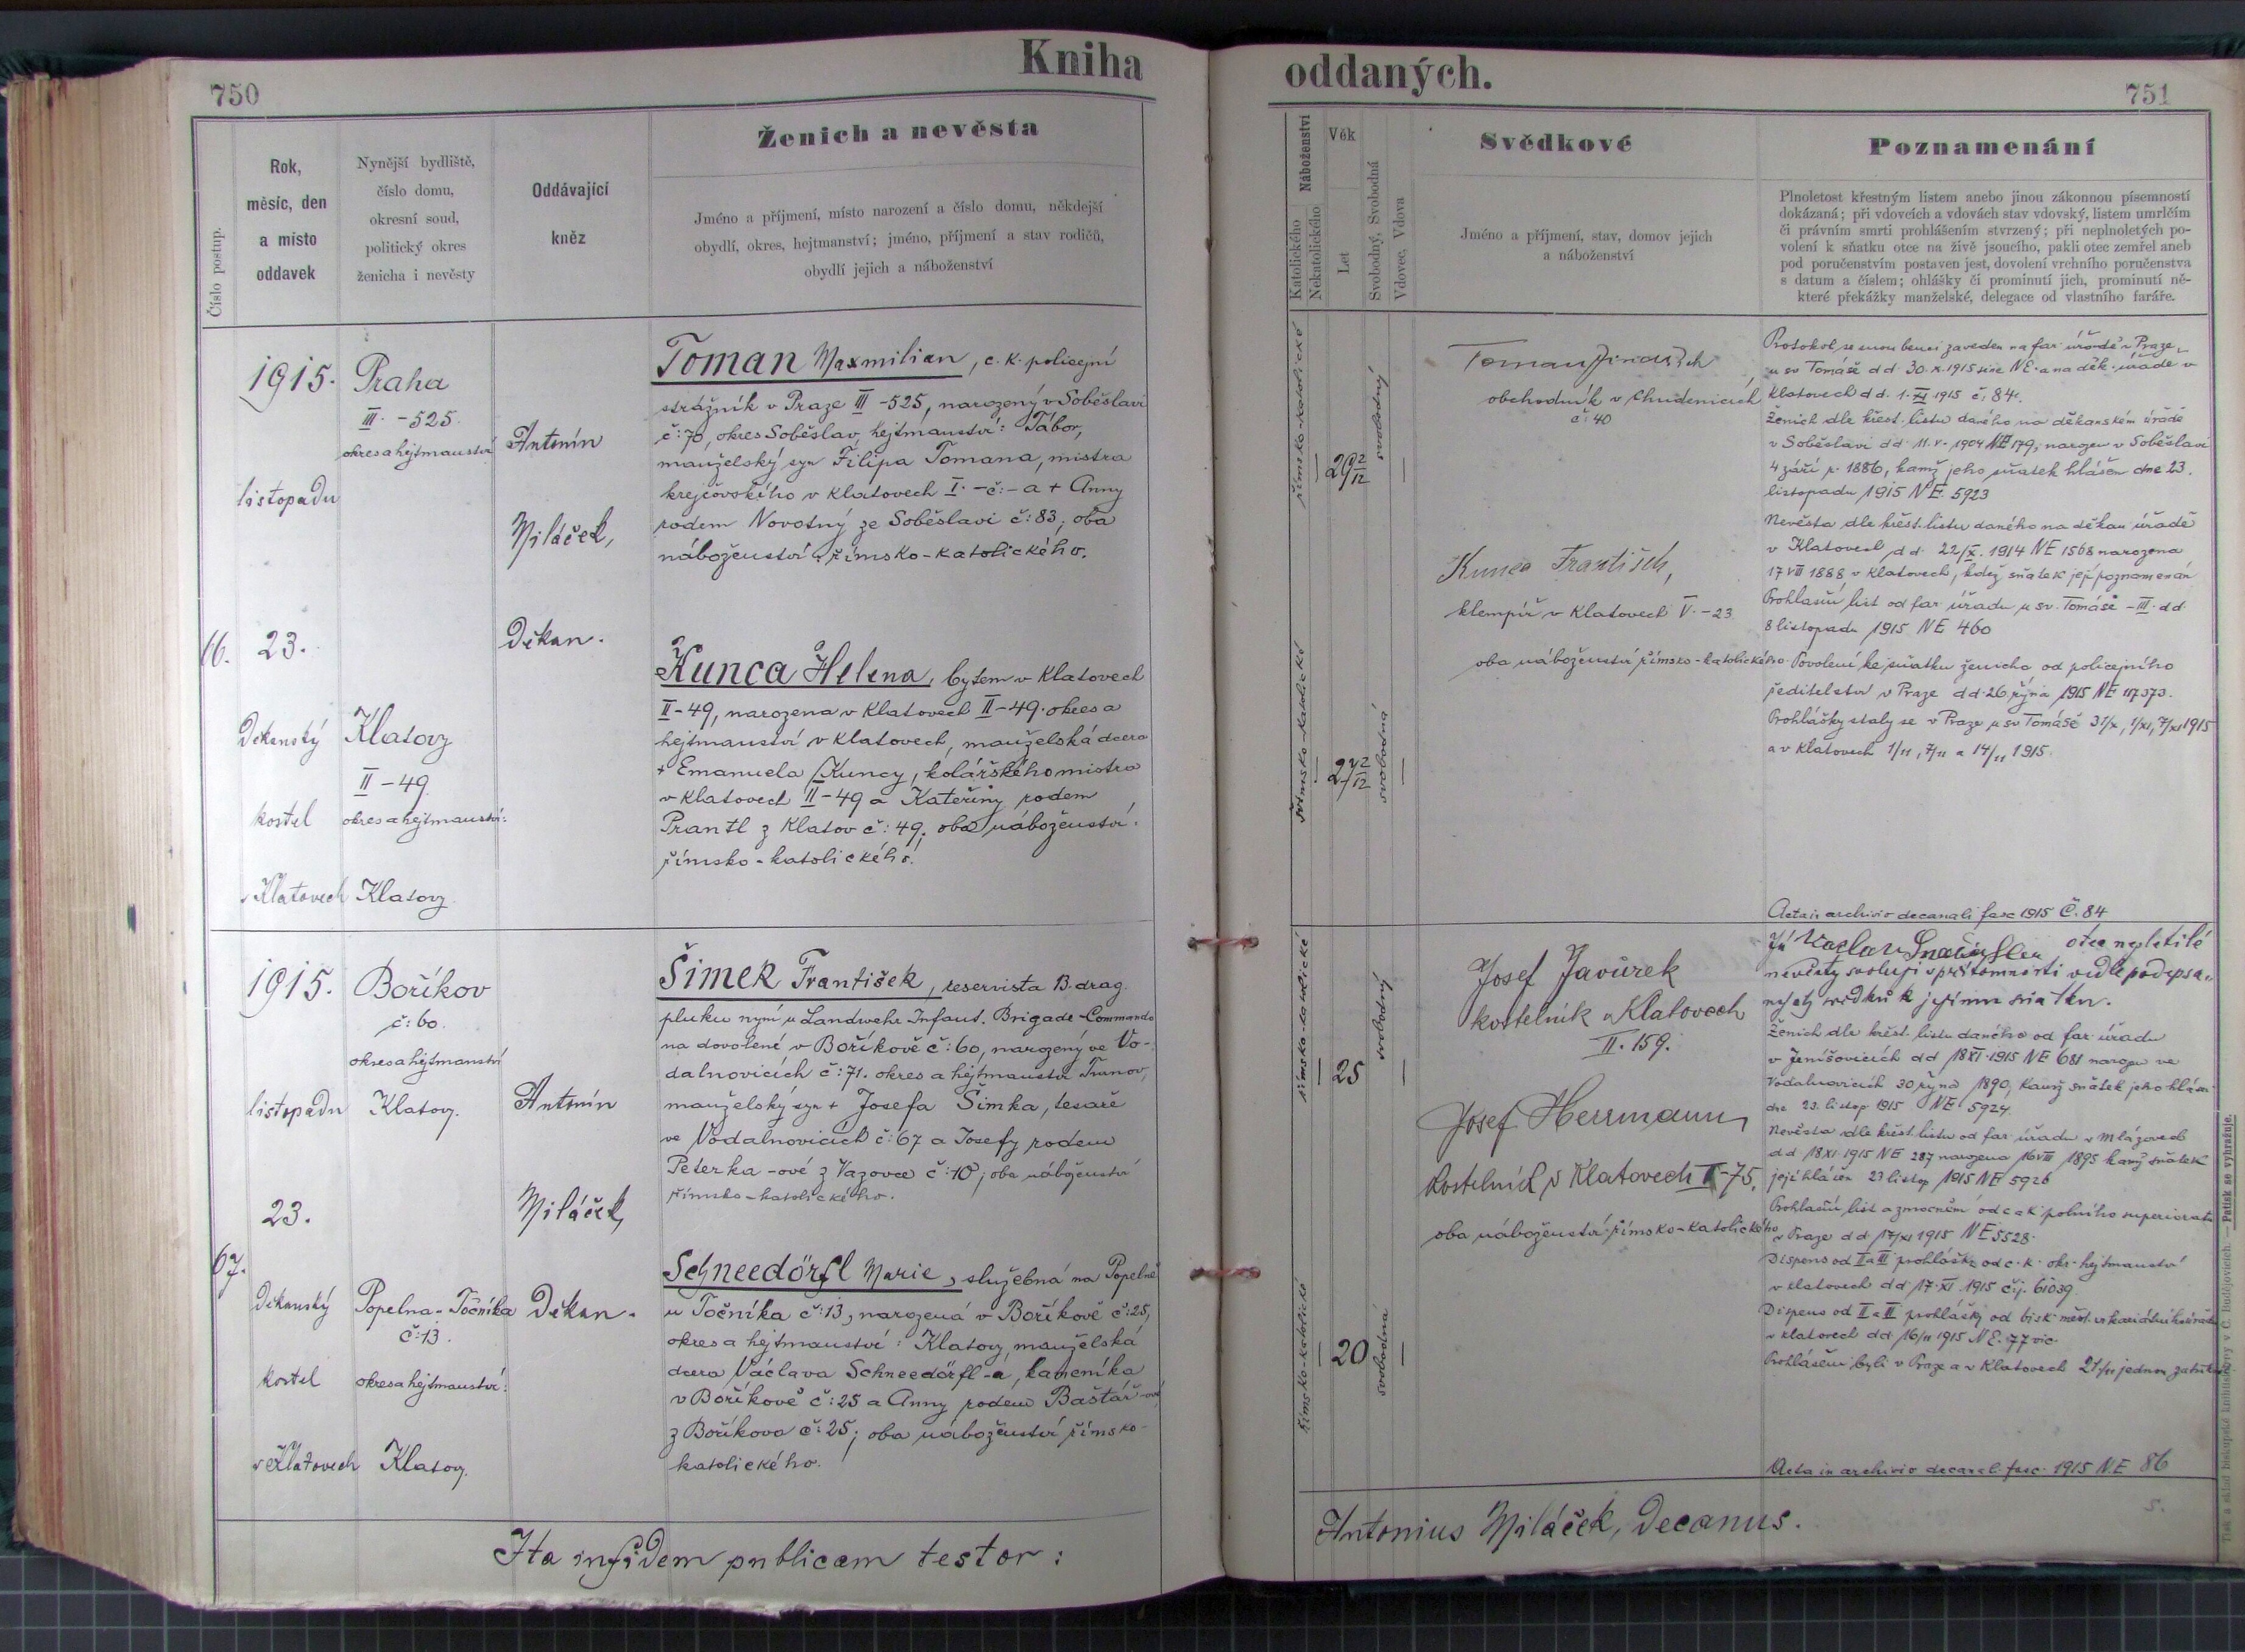 750
Kniha
Číslo postup.
Rok,
měsíc, den
a místo
oddavek
Nynější bydliště,
číslo domu,
okresní soud,
politický okres
ženicha i nevěsty
Oddávající
kněz
Ženich a nevěsta
Jméno a příjmení, místo narození a číslo domu, někdejší
obydlí, okres, hejtmanství; jméno, příjmení a stav rodičů,
obydlí jejich a náboženství
66.
1915.
listopadu
23.
Děkanský
kostel
v Klatovech
Praha
III. - 525.
okres a hejtmanství
Klatovy
II - 49.
okres a hejtmanství:
Klatovy
Antonín
Miláček,
Děkan.
Toman Maxmilian, c. k. policejní
strážník v Praze III - 525, narozený v Soběslavi
č: 70, okres Soběslav, hejtmanství: Tábor,
manželský syn Filipa Tomana, mistra
krejčovského v Klatovech I. - č: - a + Anny
rodem Novotný ze Soběslavi č: 83; oba
náboženství římsko-katolického.
Kunca Helena, bytem v Klatovech
II - 49, narozena v Klatovech II - 49. okres a
hejtmanství v Klatovech, manželská dcera
+ Emanuela Kuncy, kolářského mistra
v Klatovech II - 49 a Kateřiny rodem
Prantl z Klatov č: 49; oba náboženství
římsko-katolického.
67.
1915.
listopadu
23.
Děkanský
kostel
v Klatovech
Boříkov
č: 60.
okres a hejtmanství
Klatovy.
Popelna - Točníka
č: 13.
okres a hejtmanství:
Klatovy.
Antonín
Miláček,
Děkan.
Šimek František, reservista 13. drag.
pluku nyní u Landwehr Infant. Brigade-Commando
na dovolené v Boříkově č: 60, narozený ve Vo-
dalnovicích č: 71. okres a hejtmanství Turnov,
manželský syn + Josefa Šimka, tesaře
ve Vodalnovicích č: 67 a Josefy rodem
Peterka-ové z Vazovce č: 10; oba náboženství
římsko-katolického.
Schneedörfl Marie, služebná na Popelně
u Točníka č: 13, narozená v Boříkově č: 25,
okres a hejtmanství: Klatovy, manželská
dcera Václava Schneedörfl-a, kameníka
v Boříkově č: 25 a Anny rodem Baštář-ové
z Boříkova č: 25; oba náboženství římsko-
katolického.
Ita in fidem publicam testor:
oddaných.
751
Náboženství
Katolického
Nekatolického
Věk
Let
Svobodný, Svobodná
Vdovec, Vdova
Svědkové
Jméno a příjmení, stav, domov jejich
a náboženství
Poznamenání
Plnoletost křestným listem anebo jinou zákonnou písemností
dokázaná; při vdovcích a vdovách stav vdovský, listem umrlčím
či právním smrti prohlášením stvrzený; při neplnoletých po-
volení k sňatku otce na živě jsoucího, pakli otec zemřel aneb
pod poručenstvím postaven jest, dovolení vrchního poručenstva
s datum a číslem; ohlášky či prominutí jich, prominutí ně-
které překážky manželské, delegace od vlastního faráře.
římsko-katolické
29 2/12
svobodný
římsko-katolické
27 2/12
svobodná
Toman Jindřich
obchodník v Chudenicích,
č: 40
Kunca František,
klempíř v Klatovech V. - 23
oba náboženství římsko-katolického.
Protokol se snoubenci zaveden na far. úřadě v Praze
u sv. Tomáše dd. 30. X. 1915 sine NE. a na děk. úřadě v
Klatovech dd. 1. XI 1915 č. 84.
Ženich dle křest. listu daného na děkanském úřadě
v Soběslavi dd. 11. V. 1904 NE 179; narozen v Soběslavi
4 září r. 1886, kamž jeho sňatek hlášen dne 23.
listopadu 1915 NE. 5923
Nevěsta dle křest. listu daného na děkan. úřadě
v Klatovech dd. 22/X. 1914 NE 1568 narozena
17 VIII 1888 v Klatovech, kdež sňatek její poznamenán
Prohlašní list od far. úřadu u sv. Tomáše - III. dd
8 listopadu 1915 NE 460
Povolení ke sňatku ženicha od policejního
ředitelství v Praze dd. 26. října 1915 NE 117373.
Prohlášky staly se v Praze u sv. Tomáše 31/X, 1/XI, 7/XI 1915
a v Klatovech 1/11, 7/11 a 14/11 1915.
Acta in archivio decanali fasc 1915 Č. 84
římsko-katolické
25
svobodný
římsko-katolické
20
svobodná
Josef Javůrek
kostelník v Klatovech
II. 159.
Josef Herrmann
kostelník v Klatovech -75.
oba náboženství římsko-katolického
Já Václav otec nezletilé
nevěsty svoluji v přítomnosti vedle podepsa-
ných svědků k jejímu sňatku.
Ženich dle křest. listu daného od far. úřadu
v Jenišovicích dd 18 XI. 1915 NE 681 narozen ve
Vodalnovicích 30 října 1890, kamž sňatek jeho hlášen
dne 23. listop. 1915 NE 5924.
Nevěsta dle křest. listu od far. úřadu v Mlázovech
dd 18 XI. 1915 NE 287 narozena 16 VIII 1895 kamž sňatek
její hlášen 23 listop 1915 NE 5926
Prohlašní list a zmocnění od c a k. polního superiorátu
v Praze dd 17/XI 1915 NE 5528.
Dispens od II a III prohlášky od c. k. okr. hejtmanství
v Klatovech dd 17. XI. 1915 č: j. 61039
Dispens od II a III prohlášky od bisk. měst. vikariátního úřadu
v Klatovech dd 16/11 1915 NE. 77 vic.
Prohlášeni byli v Praze a v Klatovech 21/11 jednou
Acta in archivio decanal. fasc. 1915 N.E 86
Antonius Miláček, Decanus.
5.
Tisk a sklad biskupské knihtiskárny v Č. Budějovicích. — Patisk se vyhražuje.